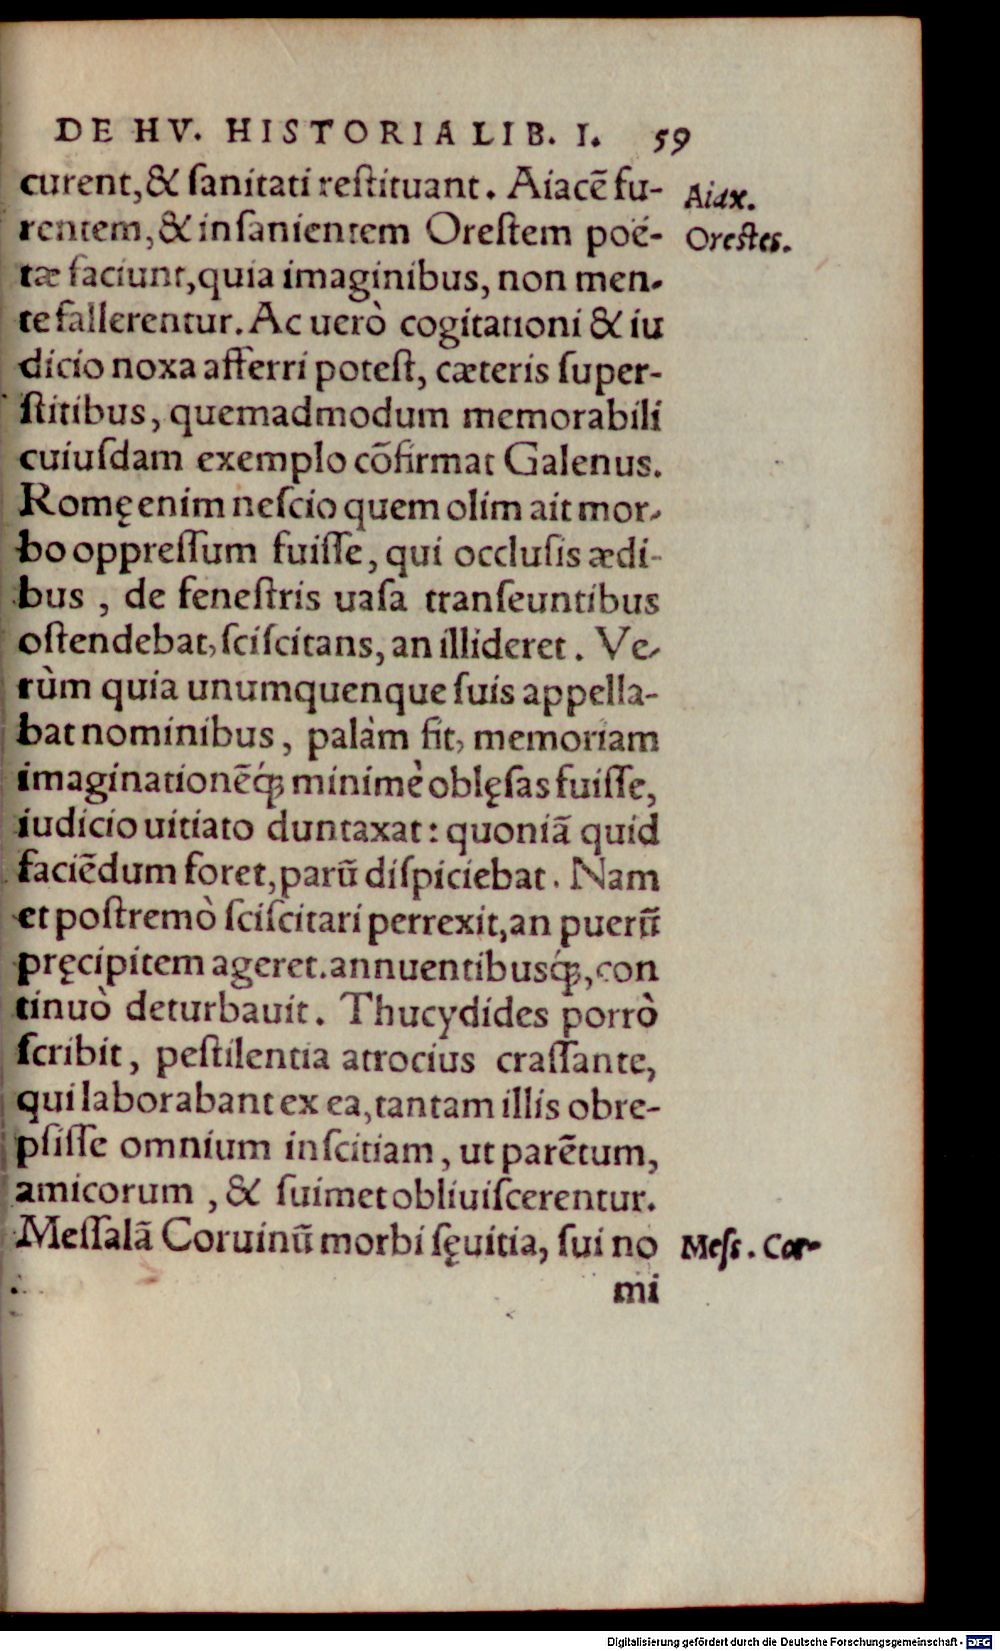 DE HV. HISTORIA LIB. I. 59
curent, & ſanitati reſtituant. Aiacē fu-
Aiax.
rentem, & inſanientem Oreſtem poë-
Orestes.
tæ faciunt, quia imaginibus, non men-
te fallerentur. Ac uerò cogitationi & iu
dicio noxa afferri poteſt, cæteris ſuper-
ſtitibus, quemadmodum memorabili
cuiuſdam exemplo cõfirmat Galenus.
Romę enim neſcio quem olim ait mor-
bo oppreſſum fuiſſe, qui occluſis ædi-
bus, de feneſtris uaſa tranſeuntibus
oſtendebat, ſciſcitans, an illideret. Ve-
rùm quia unumquenque ſuis appella-
bat nominibus, palàm fit, memoriam
imaginationēq́ꝫ minimè oblęſas fuiſſe,
iudicio uitiato duntaxat: quoniã quid
faciēdum foret, parũ diſpiciebat. Nam
et poſtremò ſciſcitari perrexit, an puerũ
pręcipitem ageret. annuentibusq́ꝫ, con
tinuò deturbauit. Thucydides porrò
ſcribit, peſtilentia atrocius craſſante,
qui laborabant ex ea, tantam illis obre-
pſiſſe omnium inſcitiam, ut parētum,
amicorum, & ſuimet obliuiſcerentur.
Meſſalã Coruinũ morbi ſęuitia, ſui no
Meſs. Cor-
mi
Digitalisierung gefördert durch die Deutsche Forschungsgemeinschaft - DFG